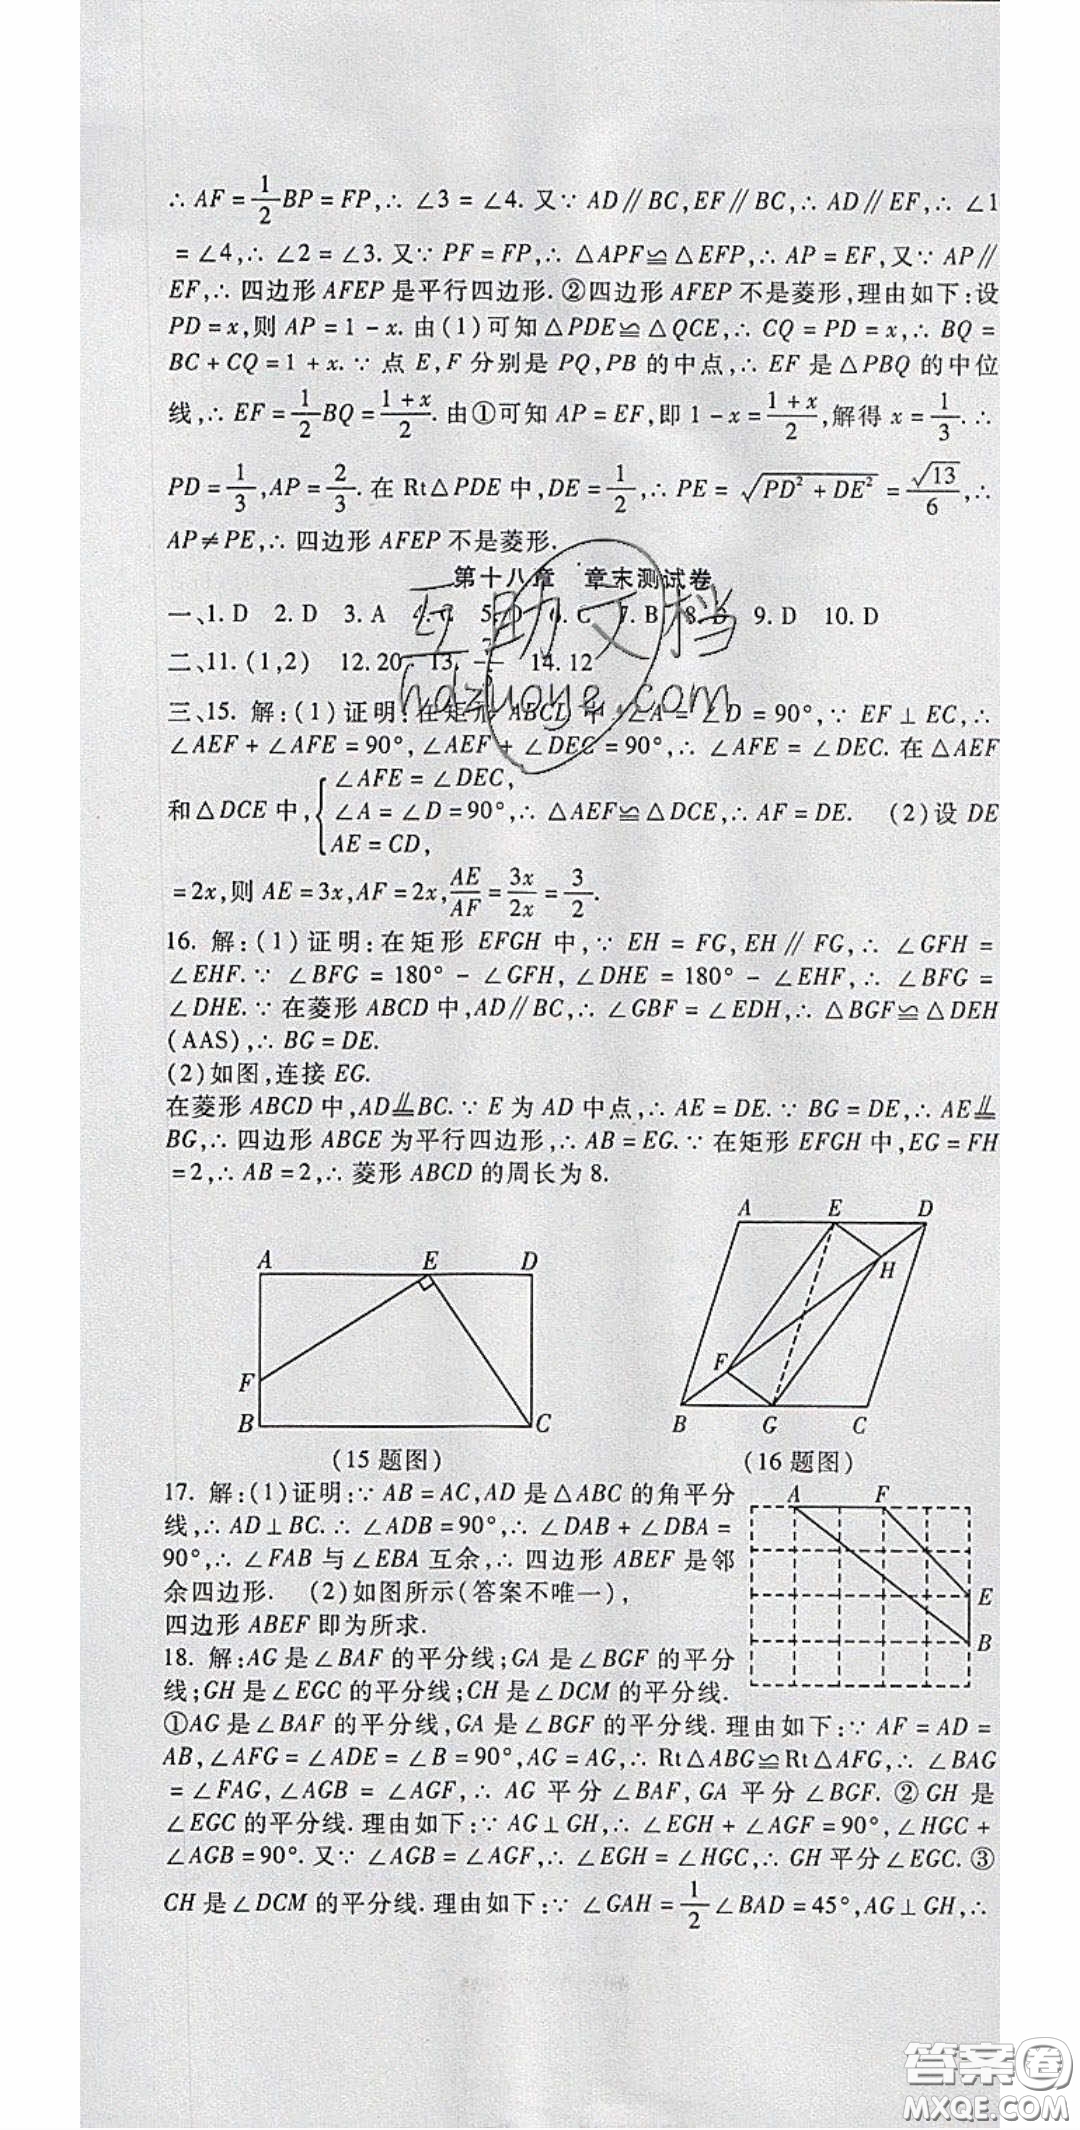 ∴ AF = 1/2 BP = FP,∴ ∠3 = ∠4. 又∵ AD∥BC,EF∥BC,∴ AD∥EF,∴ ∠1
= ∠4,∴ ∠2 = ∠3. 又∵ PF = FP,∴ △APF≌△EFP,∴ AP = EF,又∵ AP∥
EF,∴ 四边形 AFEP 是平行四边形. ②四边形 AFEP 不是菱形,理由如下:设
PD = x,则 AP = 1 - x. 由(1)可知△PDE≌△QCE,∴ CQ = PD = x,∴ BQ =
BC + CQ = 1 + x. ∵ 点 E,F 分别是 PQ,PB 的中点,∴ EF 是△PBQ 的中位
线,∴ EF = 1/2 BQ = (1+x)/2. 由①可知 AP = EF,即 1 - x = (1+x)/2,解得 x = 1/3. ∴
PD = 1/3,AP = 2/3. 在 Rt△PDE 中,DE = 1/2,∴ PE = √(PD² + DE²) = √13/6,∴
AP≠PE,∴ 四边形 AFEP 不是菱形.
第十八章 章末测试卷
一、1. D 2. D 3. A 4. C 5. D 6. C 7. B 8. D 9. D 10. D
二、11. (1,2) 12. 20 13. 14. 12
三、15. 解:(1)证明:在矩形 ABCD 中,∠A = ∠D = 90°,∵ EF⊥EC,∴
∠AEF + ∠AFE = 90°,∠AEF + ∠DEC = 90°,∴ ∠AFE = ∠DEC. 在△AEF
∠AFE = ∠DEC,
和△DCE 中,{ ∠A = ∠D = 90°,∴ △AEF≌△DCE,∴ AF = DE. (2)设 DE
AE = CD,
= 2x,则 AE = 3x,AF = 2x,AE/AF = 3x/2x = 3/2.
16. 解:(1)证明:在矩形 EFGH 中,∵ EH = FG,EH∥FG,∴ ∠GFH =
∠EHF. ∵ ∠BFG = 180° - ∠GFH,∠DHE = 180° - ∠EHF,∴ ∠BFG =
∠DHE. ∵ 在菱形 ABCD 中,AD∥BC,∴ ∠GBF = ∠EDH,∴ △BGF≌△DEH
(AAS),∴ BG = DE.
(2)如图,连接 EG.
在菱形 ABCD 中,AD⫫BC. ∵ E 为 AD 中点,∴ AE = DE. ∵ BG = DE,∴ AE⫫
BG,∴ 四边形 ABGE 为平行四边形,∴ AB = EG. ∵ 在矩形 EFGH 中,EG = FH
= 2,∴ AB = 2,∴ 菱形 ABCD 的周长为 8.
A E D
F
B C
(15 题图)
A E D
H
F
B G C
(16 题图)
17. 解:(1)证明:∵ AB = AC,AD 是△ABC 的角平分
线,∴ AD⊥BC. ∴ ∠ADB = 90°,∴ ∠DAB + ∠DBA =
90°,∴ ∠FAB 与∠EBA 互余,∴ 四边形 ABEF 是邻
余四边形. (2)如图所示(答案不唯一),
四边形 ABEF 即为所求.
A F
E
B
18. 解:AG 是∠BAF 的平分线;GA 是∠BGF 的平分
线;GH 是∠EGC 的平分线;CH 是∠DCM 的平分线.
①AG 是∠BAF 的平分线,GA 是∠BGF 的平分线. 理由如下:∵ AF = AD =
AB,∠AFG = ∠ADE = ∠B = 90°,AG = AG,∴ Rt△ABG≌Rt△AFG,∴ ∠BAG
= ∠FAG,∠AGB = ∠AGF,∴ AG 平分∠BAF,GA 平分∠BGF. ②GH 是
∠EGC 的平分线. 理由如下:∵ AG⊥GH,∴ ∠EGH + ∠AGF = 90°,∠HGC +
∠AGB = 90°. 又∵ ∠AGB = ∠AGF,∴ ∠EGH = ∠HGC,∴ GH 平分∠EGC. ③
CH 是∠DCM 的平分线. 理由如下:∵ ∠GAH = 1/2 ∠BAD = 45°,AG⊥GH,∴
互助文档
hdzuoye.com
答案圈
MXQE.COM